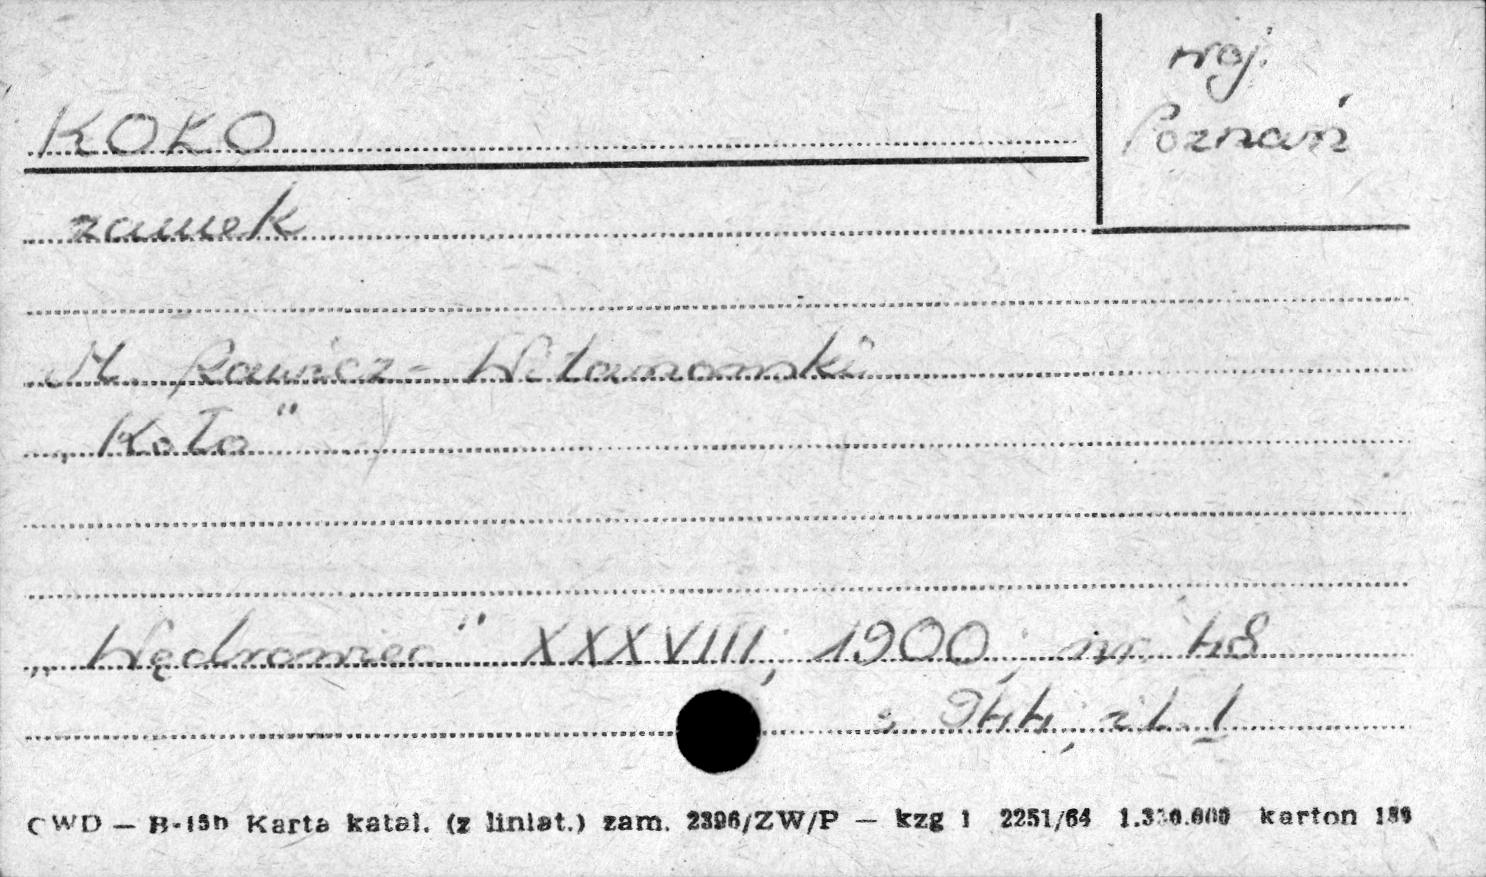 woj.
Poznań
KOŁO
zamek
M. Rawicz-Witanowski
„Koło"
„Wędrowiec" XXXVIII, 1900, nr. 48
s. 944, il. 1
CWD — B-15b Karta katal. (z liniat.) zam. 2396/ZW/P — kzg 1 2251/64 karton